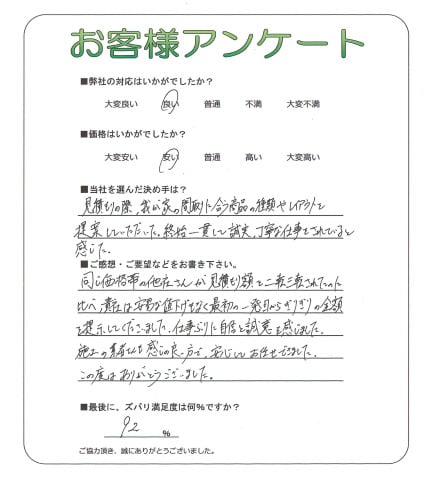 お客様アンケート
■弊社の対応はいかがでしたか?
大変良い 良い 普通 不満 大変不満
■価格はいかがでしたか?
大変安い 安い 普通 高い 大変高い
■当社を選んだ決め手は?
見積もりの際、我が家の間取りに合う商品の種類やレイアウトを
提案していただいた。終始一貫して誠実、丁寧な仕事をされていると
感じた。
■ご感想・ご要望などをお書き下さい。
同じ価格帯の他社さんが見積り額を二転三転されたのに
比べ、貴社は安易な値下げもなく最初の一発目からぎりぎりの金額
を提示してくださいました。仕事ぶりに自信と誠意を感じました。
施工の業者さんも感じの良い方で、安心してお任せできました。
この度はありがとうございました。
■最後に、ズバリ満足度は何%ですか?
92 %
ご協力頂き、誠にありがとうございました。